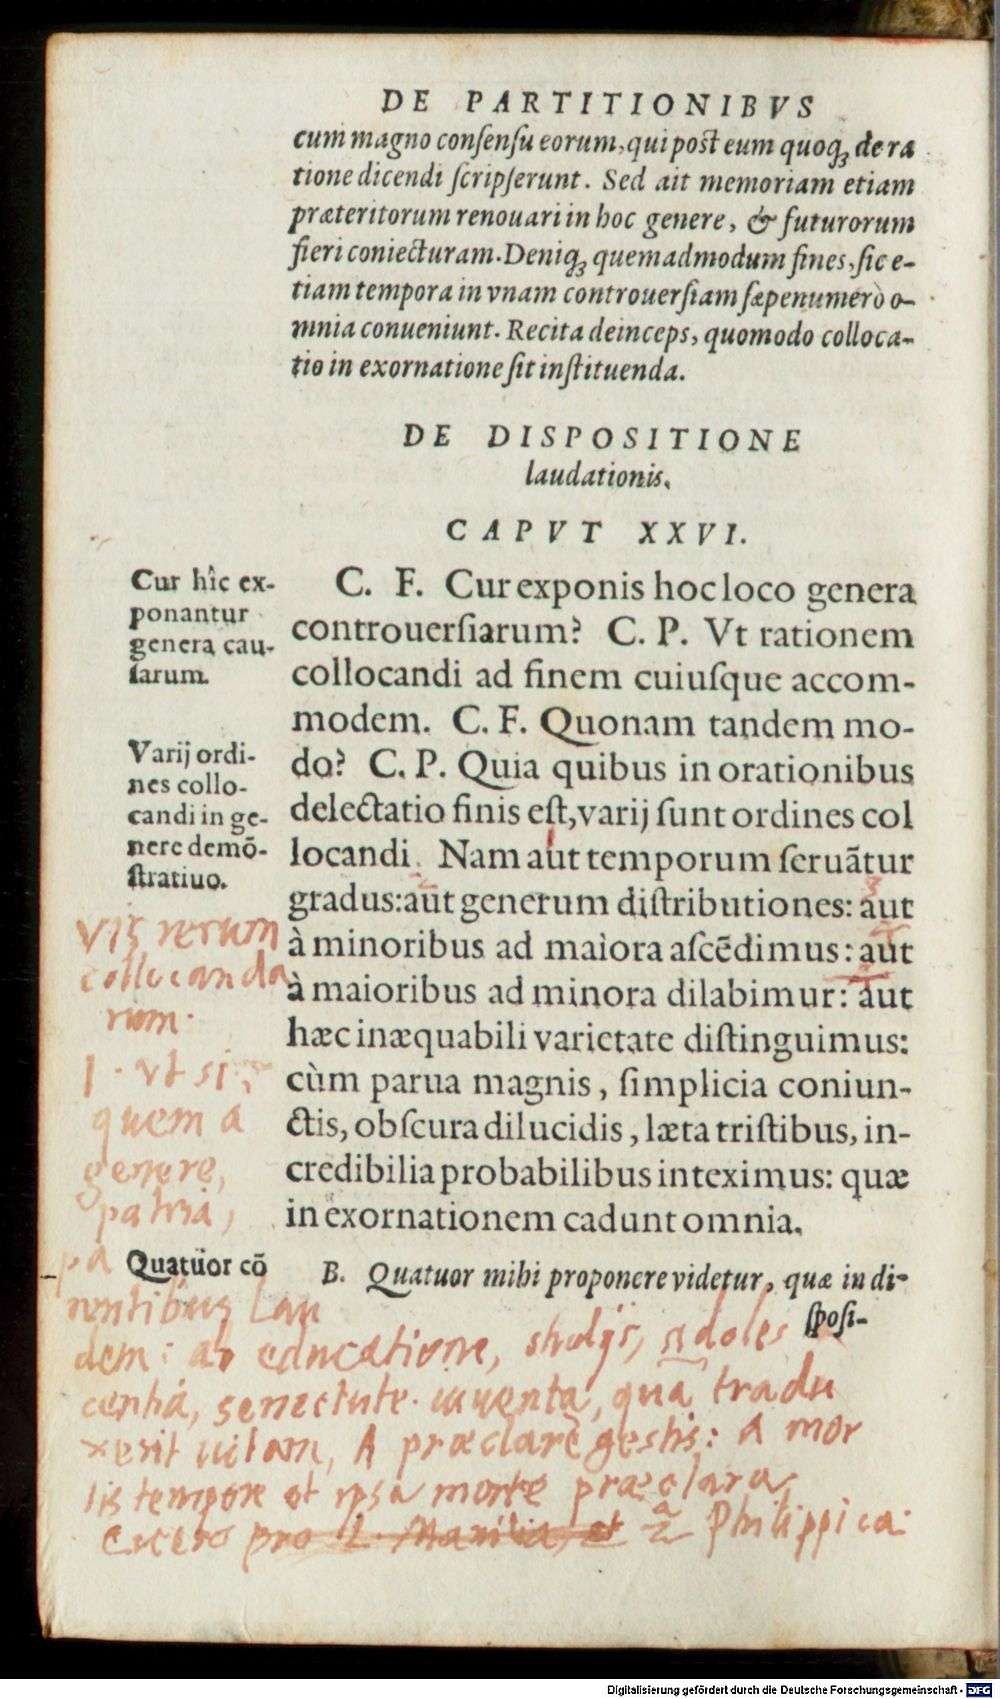 DE PARTITIONIBVS
cum magno conſenſu eorum, qui post eum quoqꝫ de ra
tione dicendi ſcripſerunt. Sed ait memoriam etiam
præteritorum renouari in hoc genere, & futurorum
fieri coniecturam. Deniqꝫ quemadmodum fines, ſic e-
tiam tempora in vnam controuerſiam ſæpenumerò o-
mnia conueniunt. Recita deinceps, quomodo colloca-
tio in exornatione ſit inſtituenda.
DE DISPOSITIONE
laudationis.
CAPVT XXVI.
Cur hîc ex-
ponantur
genera cau-
ſarum.
C. F. Cur exponis hoc loco genera
controuerſiarum? C. P. Vt rationem
collocandi ad finem cuiuſque accom-
modem. C. F. Quonam tandem mo-
do? C. P. Quia quibus in orationibus
delectatio finis eſt, varij ſunt ordines col
locandi. Nam aut temporum ſeruãtur
gradus: aut generum diſtributiones: aut
à minoribus ad maiora aſcẽdimus: aut
à maioribus ad minora dilabimur: aut
hæc inæquabili varietate diſtinguimus:
cùm parua magnis, ſimplicia coniun-
ctis, obſcura dilucidis, læta triſtibus, in-
credibilia probabilibus inteximus: quæ
in exornationem cadunt omnia.
Varij ordi-
nes collo-
candi in ge-
nere demõ-
ſtratiuo.
vis rerum
collocanda
rum.
1. vt si
quem a
genere,
patria,
pa
Quatuor cõ
B. Quatuor mihi proponere videtur, quæ in di-
ſpoſi-
rentibus lau
dem: ab educatione, studijs, adoles
centia, senectute. iuuenta, qua tradu
xerit uitam, A præclarè gestis: a mor
tis tempore et ipsa morte præclara,
Cicero pro L. Manilia, et 2ª Philippica.